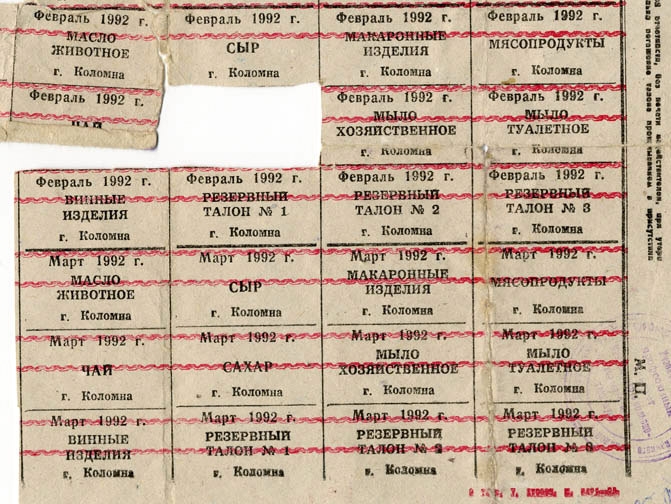 Февраль 1992 г.
МАСЛО
ЖИВОТНОЕ
г. Коломна
Февраль 1992 г.
СЫР
г. Коломна
Февраль 1992 г.
МАКАРОННЫЕ
ИЗДЕЛИЯ
г. Коломна
Февраль 1992 г.
МЯСОПРОДУКТЫ
г. Коломна
Февраль 1992 г.
ЧАЙ
Февраль 1992 г.
МЫЛО
ХОЗЯЙСТВЕННОЕ
г. Коломна
Февраль 1992 г.
МЫЛО
ТУАЛЕТНОЕ
г. Коломна
Февраль 1992 г.
ВИННЫЕ
ИЗДЕЛИЯ
г. Коломна
Февраль 1992 г.
РЕЗЕРВНЫЙ
ТАЛОН № 1
г. Коломна
Февраль 1992 г.
РЕЗЕРВНЫЙ
ТАЛОН № 2
г. Коломна
Февраль 1992 г.
РЕЗЕРВНЫЙ
ТАЛОН № 3
г. Коломна
Март 1992 г.
МАСЛО
ЖИВОТНОЕ
г. Коломна
Март 1992 г.
СЫР
г. Коломна
Март 1992 г.
МАКАРОННЫЕ
ИЗДЕЛИЯ
г. Коломна
Март 1992 г.
МЯСОПРОДУКТЫ
г. Коломна
Март 1992 г.
ЧАЙ
г. Коломна
Март 1992 г.
САХАР
г. Коломна
Март 1992 г.
МЫЛО
ХОЗЯЙСТВЕННОЕ
г. Коломна
Март 1992 г.
МЫЛО
ТУАЛЕТНОЕ
г. Коломна
Март 1992 г.
ВИННЫЕ
ИЗДЕЛИЯ
г. Коломна
Март 1992 г.
РЕЗЕРВНЫЙ
ТАЛОН № 1
г. Коломна
Март 1992 г.
РЕЗЕРВНЫЙ
ТАЛОН № 2
г. Коломна
Март 1992 г.
РЕЗЕРВНЫЙ
ТАЛОН № 3
г. Коломна
М. П.